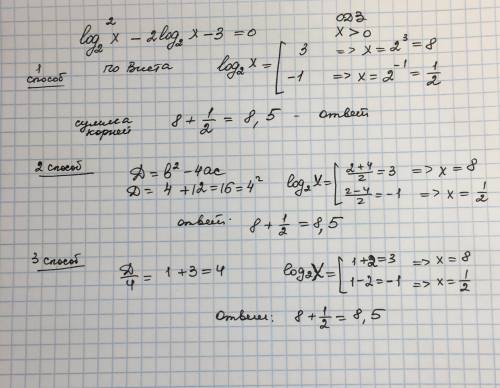 log₂² x − 2log₂ x − 3 = 0
ОДЗ
x > 0
1 способ
по Виета
log₂ x = [ 3 => x = 2³ = 8
−1 => x = 2⁻¹ = 1/2
сумма корней 8 + 1/2 = 8,5 – ответ
2 способ
Д = b² − 4ac
Д = 4 + 12 = 16 = 4²
log₂ x = [ (2+4)/2 = 3 => x = 8
(2−4)/2 = −1 => x = 1/2
ответ. 8 + 1/2 = 8,5
3 способ
Д/4 = 1 + 3 = 4
log₂ x = [ 1+2 = 3 => x = 8
1−2 = −1 => x = 1/2
Ответ: 8 + 1/2 = 8,5